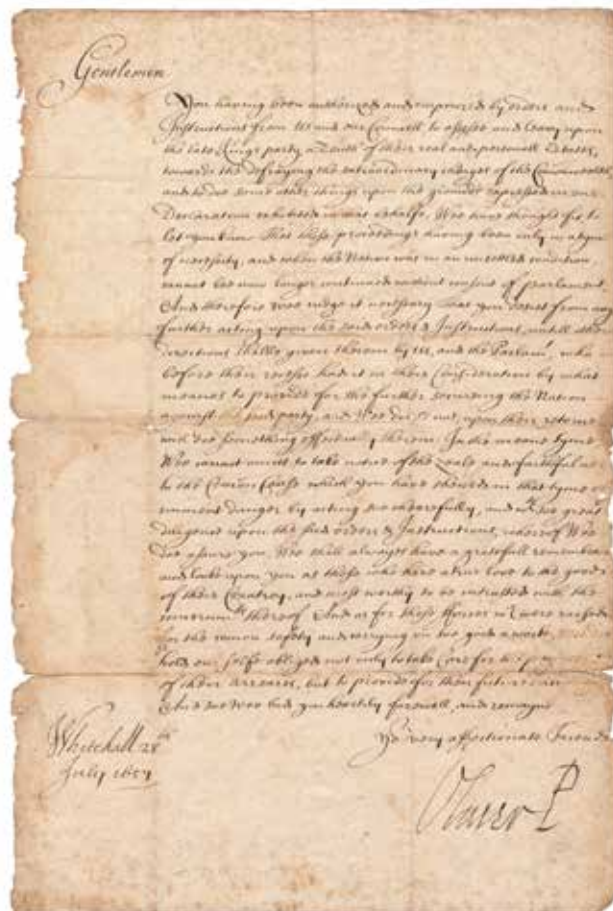 Gentlemen
You having been authorized and empowred by orders and
Instructions from Us and our Councell to assesse and Levy upon
the late Kings party a Tenth of their real and personall Estates,
towards the defraying the extraordinary charges of the Commonwealth
and to doe some other things upon the grounds expressed in our
Declaration exhibited in that behalfe, Wee have thought fit to
let you know That those proceedings having been only in a tyme
of necessity, and when the Nation was in an unsettled condition,
cannot bee now longer continued without consent of parlament.
And therefore wee judge it necessary that you desist from any
further acting upon the said orders & Instructions, untill other
directions shalbe given therein by Us, and the Parlamt, who
before their recesse had it in their Consideration by what
meanes to provide for the further securing the Nation
against the said party, and Wee doubt not upon their retorne
will doe something effectuall therein. In the meane tyme
Wee cannot omitt to take notice of the Zeale and faithfulnes
to the Comon Cause which you have shewed in that tyme of
imminent danger by acting soe cheerefully, and wth soe great
diligence upon the said orders & Instructions, whereof Wee
doe assure you, Wee shall always have a gratefull remembrance
and looke upon you as those who have a true love to the good
of their Countrey, and most worthy to be intrusted with the
thereof. And as for those fforces wch were raised
for the comon safety and carrying on soe good a worke,
hold our selfe obliged not only to take Care for the
of their arreares, but to provide for their future
And soe Wee bid you heartily farewell, and remayne
Yor very affectionate Friend
Whitehall 28th
July 1657
Oliver P